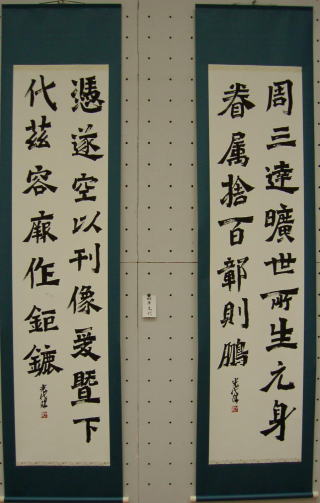 周三達曠世所生元身
眷属捨百鄣則鵬
憑遂空以刊像爰暨下
代茲容厥作鉅鏕